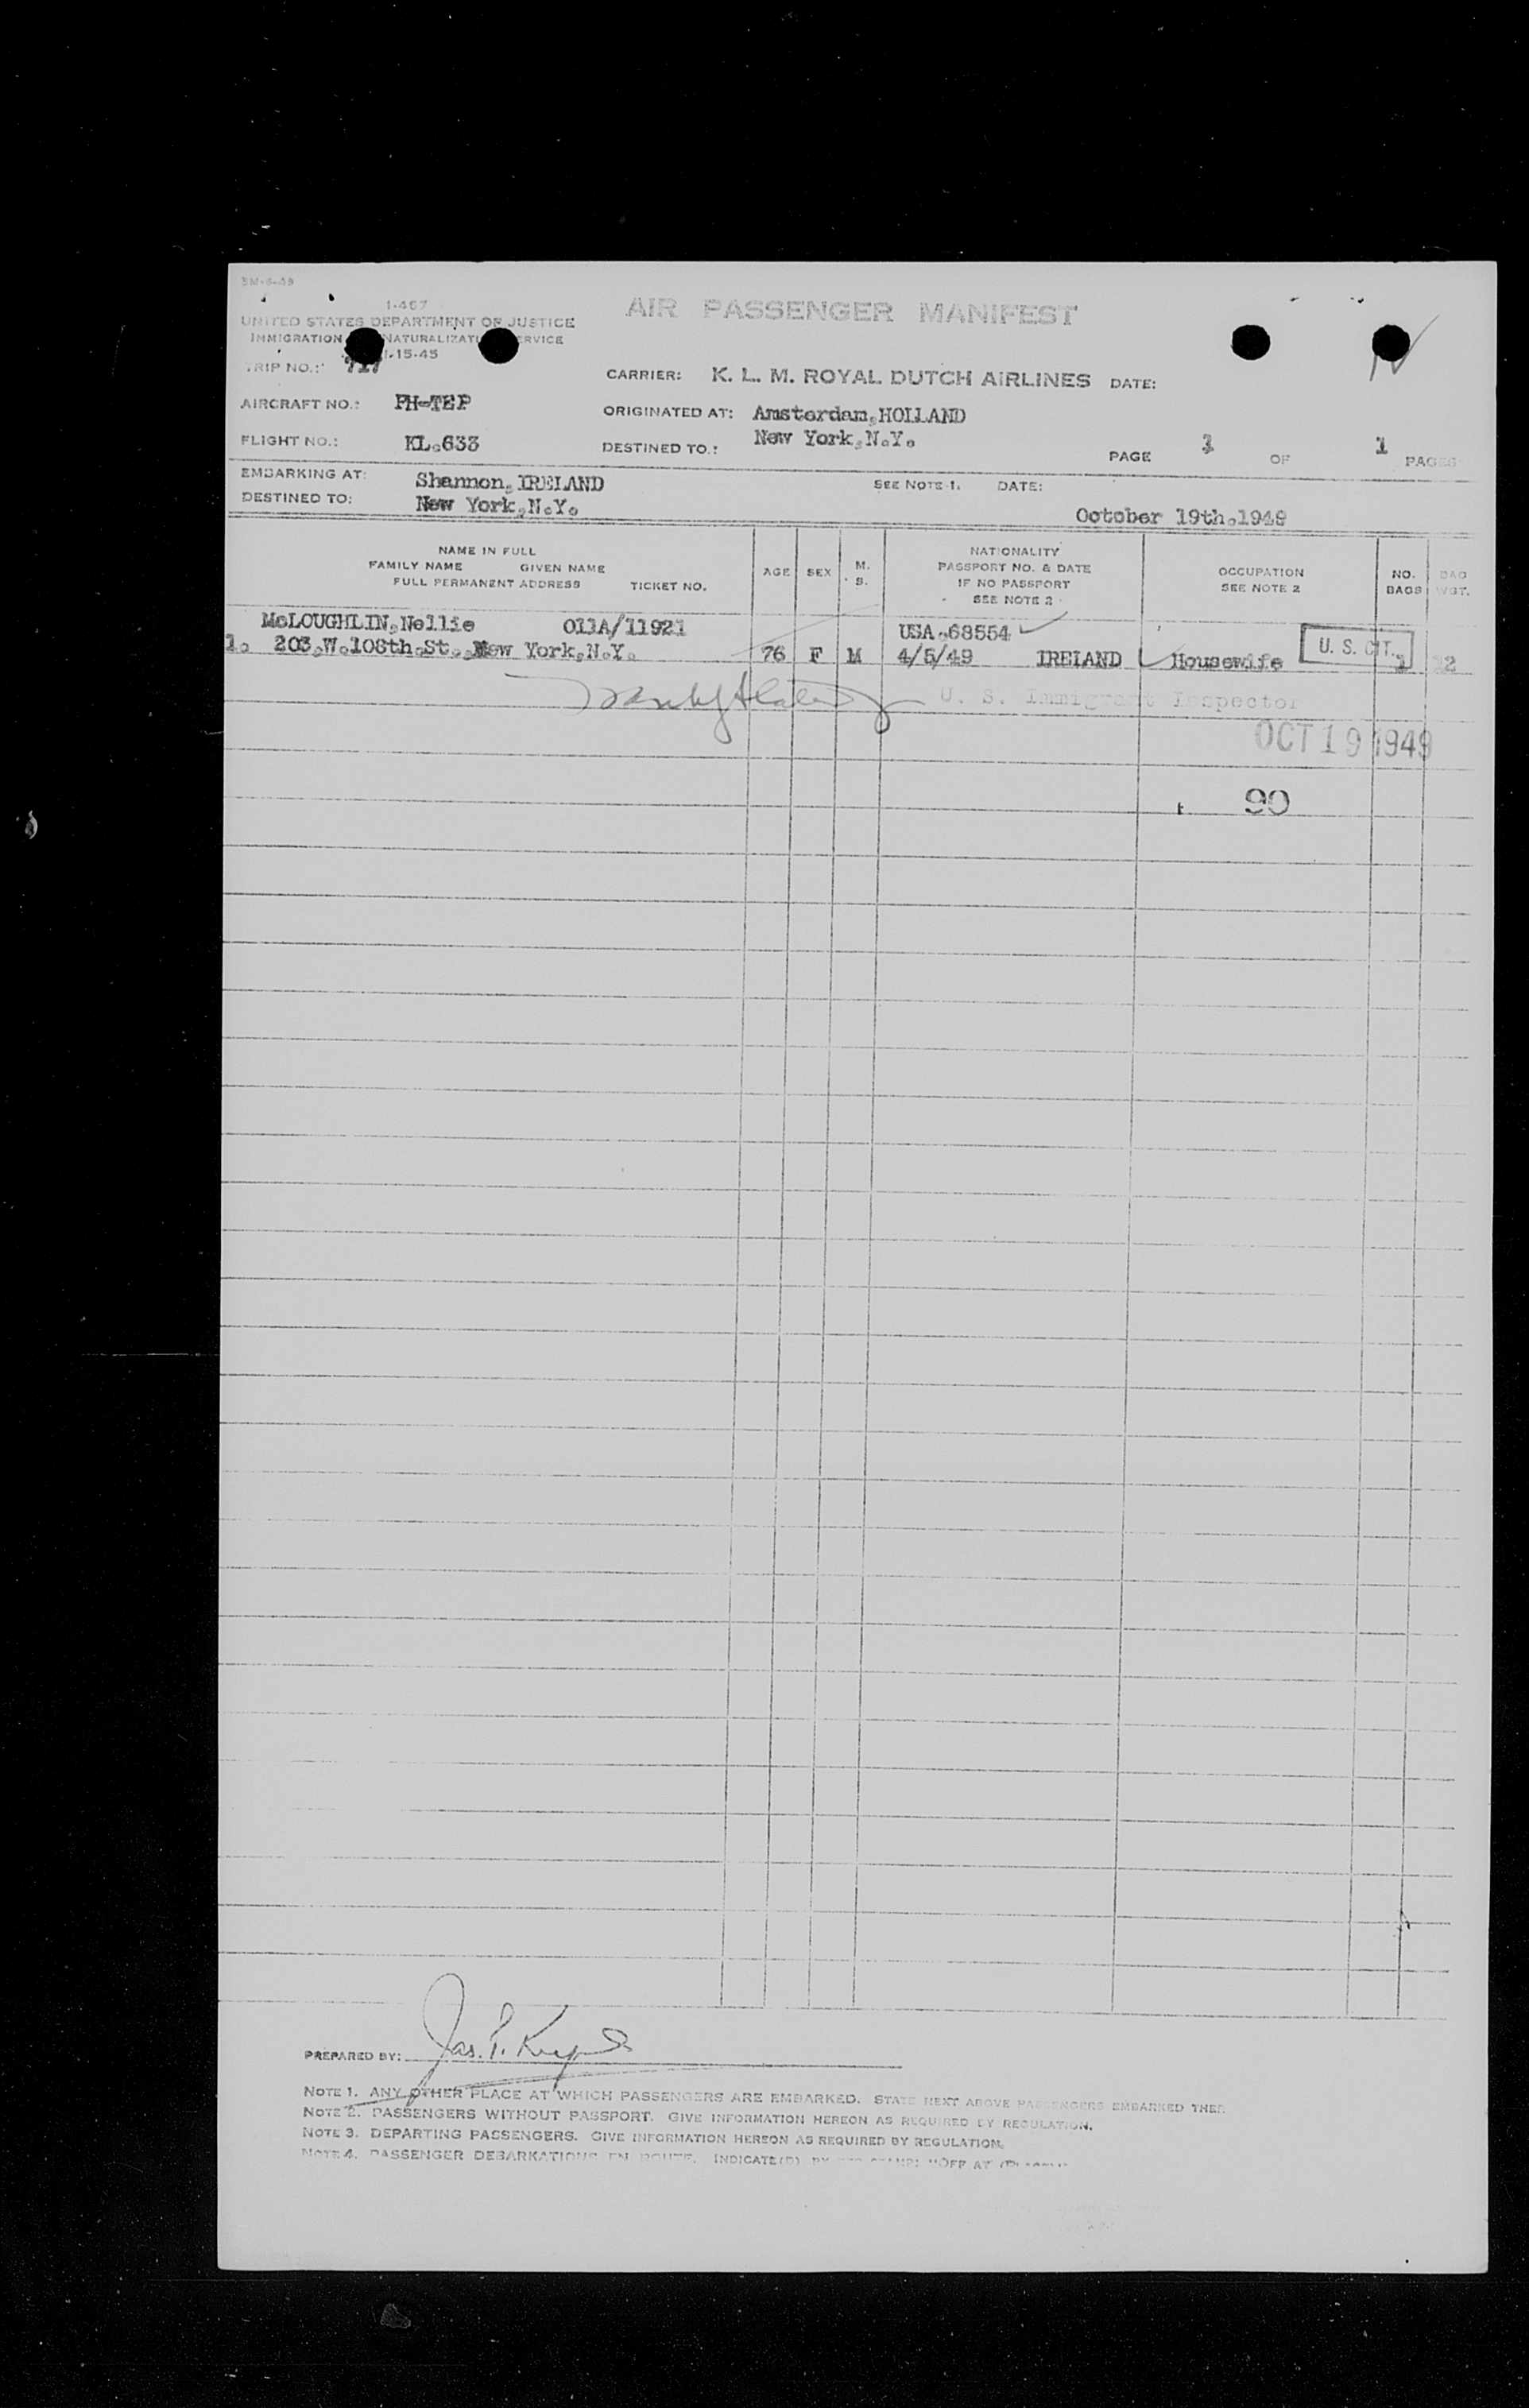 3M-6-49
I-467
AIR PASSENGER MANIFEST
UNITED STATES DEPARTMENT OF JUSTICE
IMMIGRATION NATURALIZATI ERVICE
1-15-45
TRIP NO.: 717
CARRIER: K. L. M. ROYAL DUTCH AIRLINES DATE:
AIRCRAFT NO.: PH-TEP
ORIGINATED AT: Amsterdam,HOLLAND
FLIGHT NO.: KL.633
DESTINED TO.: New York,N.Y.
PAGE 1 OF 1 PAGES
EMBARKING AT: Shannon,IRELAND
SEE NOTE 1. DATE:
DESTINED TO: New York,N.Y.
October 19th.1949
NAME IN FULL
FAMILY NAME GIVEN NAME
FULL PERMANENT ADDRESS TICKET NO.
AGE
SEX
M. S.
NATIONALITY
PASSPORT NO. & DATE
IF NO PASSPORT
SEE NOTE 2
OCCUPATION
SEE NOTE 2
NO. BAGS
BAG WGT.
McLOUGHLIN,Nellie 011A/11921 USA.68554
1. 203.W.108th.St.,New York,N.Y. 76 F M 4/5/49 IRELAND Housewife U. S. CIT. 1
U. S. Immigrant Inspector
OCT 19 1949
90
PREPARED BY: Jas. P.
NOTE 1. ANY OTHER PLACE AT WHICH PASSENGERS ARE EMBARKED. STATE NEXT ABOVE PASSENGERS EMBARKED THER
NOTE 2. PASSENGERS WITHOUT PASSPORT. GIVE INFORMATION HEREON AS REQUIRED BY REGULATION.
NOTE 3. DEPARTING PASSENGERS. GIVE INFORMATION HEREON AS REQUIRED BY REGULATION.
NOTE 4. PASSENGER DEBARKATIONS EN ROUTE. INDICATE(D) BY "OFF AT